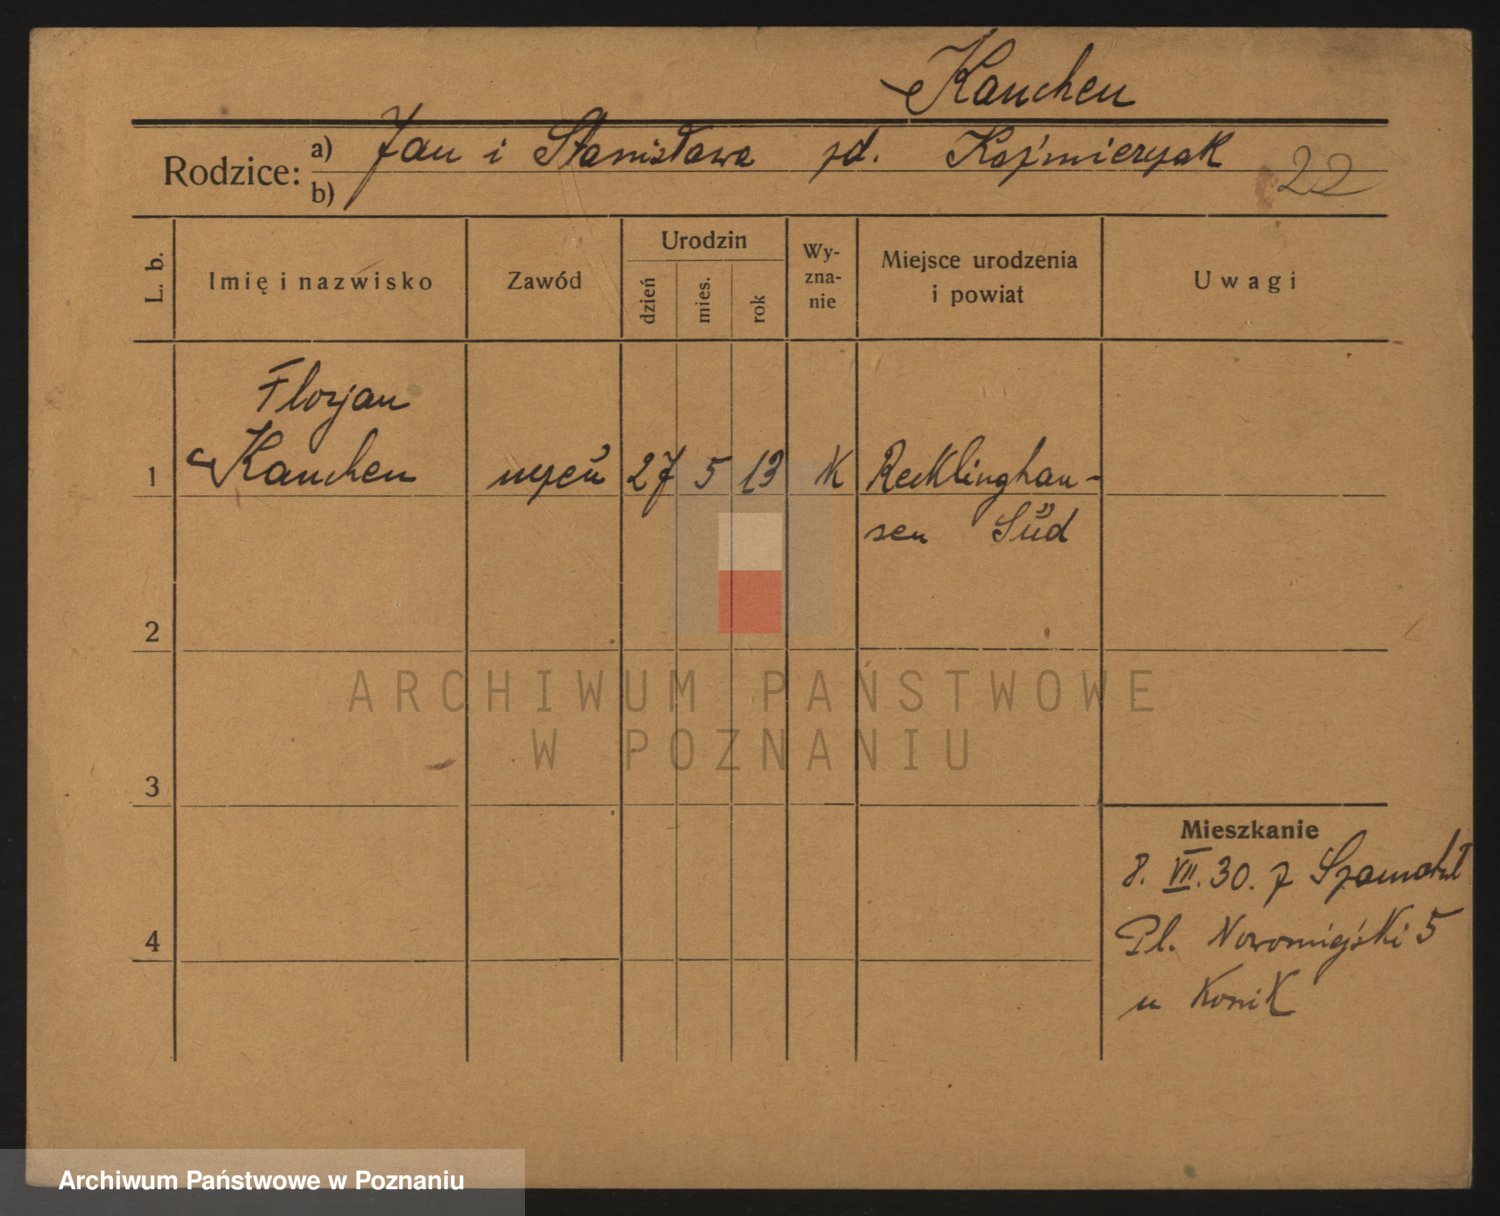 Kauchen
Rodzice: a) Jan i Stanisława zd. Kaźmierczak
b)
22
L. b. Imię i nazwisko Zawód Urodzin dzień mies. rok Wyznanie Miejsce urodzenia i powiat Uwagi
Florjan
1 Kauchen uczeń 27 5 13 K Recklinghau-
sen Süd
2
3
4
Mieszkanie
8. VII. 30. z Szamotuł
Pl. Nowomiejski 5
u Konik
ARCHIWUM PAŃSTWOWE
W POZNANIU
Archiwum Państwowe w Poznaniu